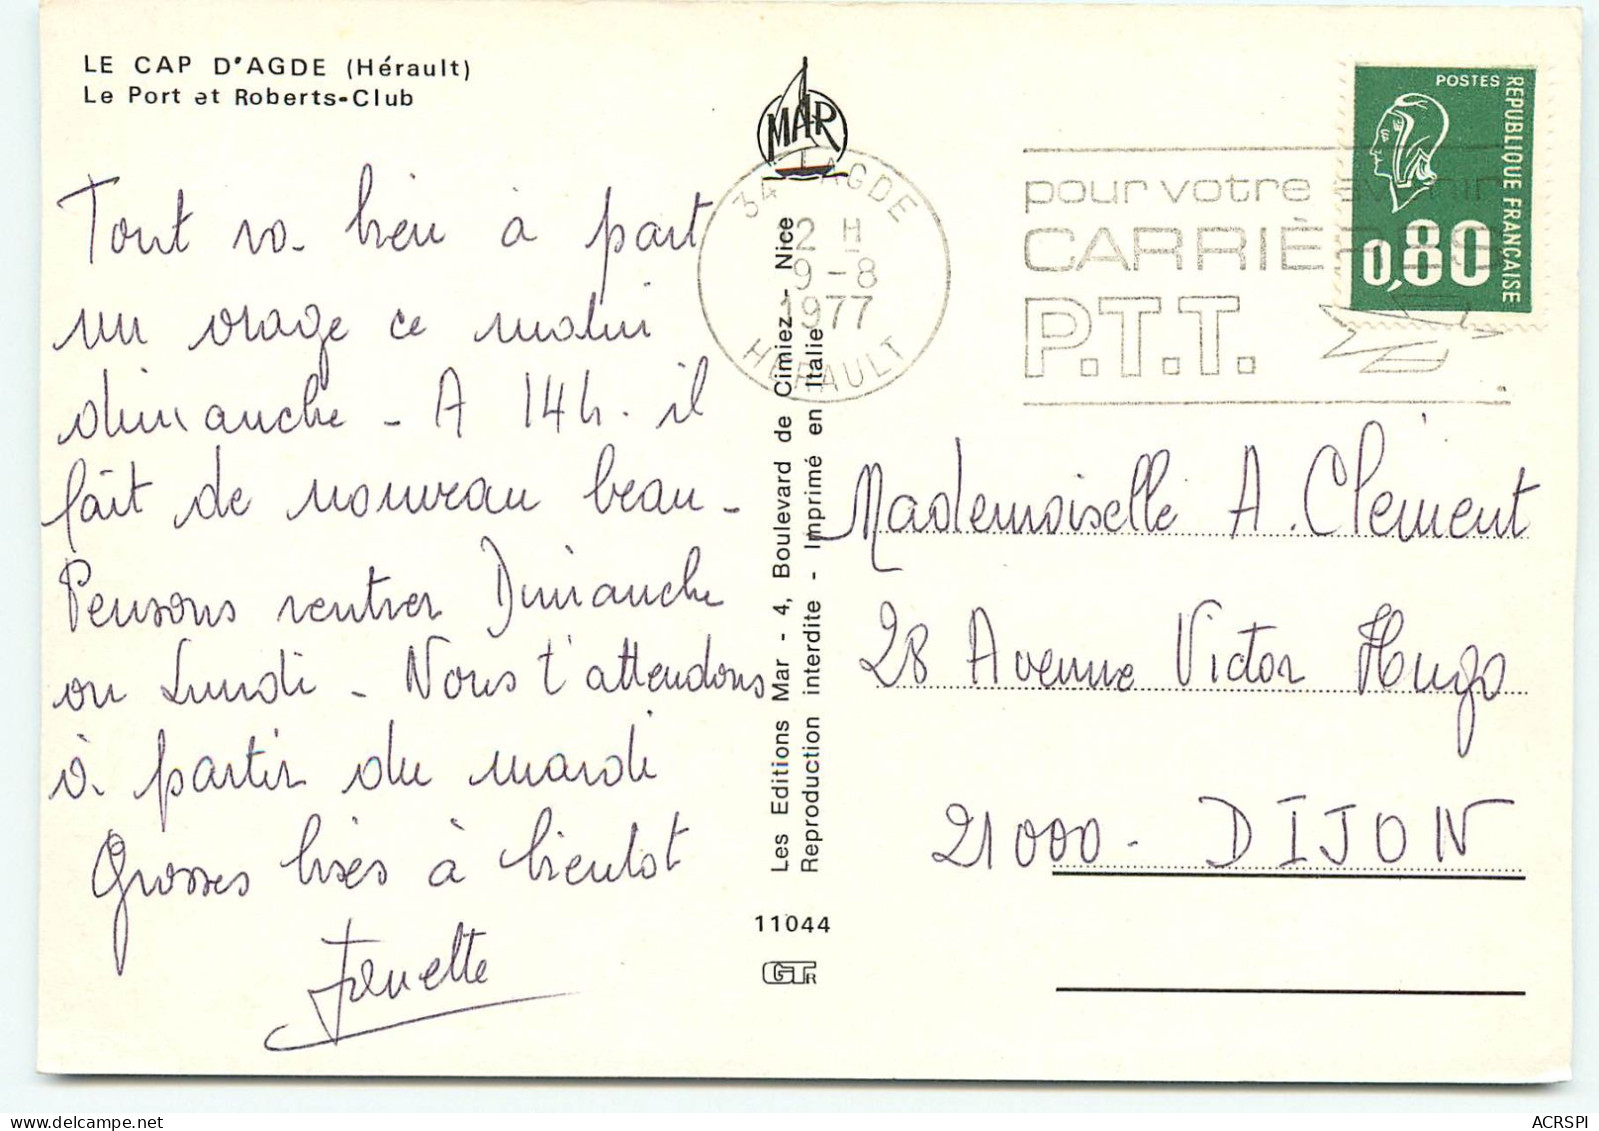 LE CAP D'AGDE (Hérault)
Le Port et Roberts-Club
Tout va bien à part
un orage ce matin
dimanche - A 14 h. il
fait de nouveau beau -
Pensons rentrer Dimanche
ou Lundi - Nous t'attendons
à partir du mardi
Grosses bises à bientot
MAR
34 AGDE
12 H
9-8
1977
HERAULT
Les Editions Mar - 4, Boulevard de Cimiez - Nice
Reproduction interdite - Imprimé en Italie
11044
GTR
pour votre avenir
CARRIÈRES
P.T.T.
POSTES
REPUBLIQUE FRANCAISE
0,80
Mademoiselle A. Clément
28 Avenue Victor Hugo
21000 - DIJON
ACRSPI